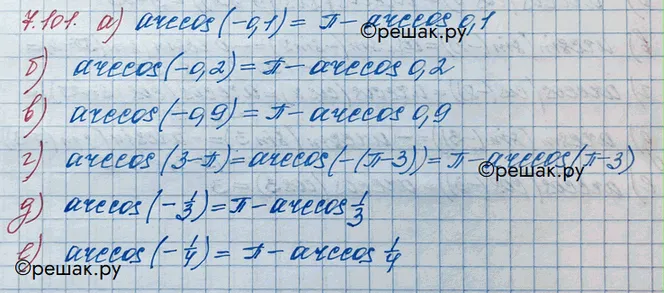 7.101. а) arccos(-0,1) = π - arccos 0,1
©решак.ру
б) arccos(-0,2) = π - arccos 0,2
в) arccos(-0,9) = π - arccos 0,9
г) arccos(3-π) = arccos(-(π-3)) = π - arccos(π-3)
©решак.ру
д) arccos(-1/3) = π - arccos 1/3
е) arccos(-1/4) = π - arccos 1/4
©решак.ру